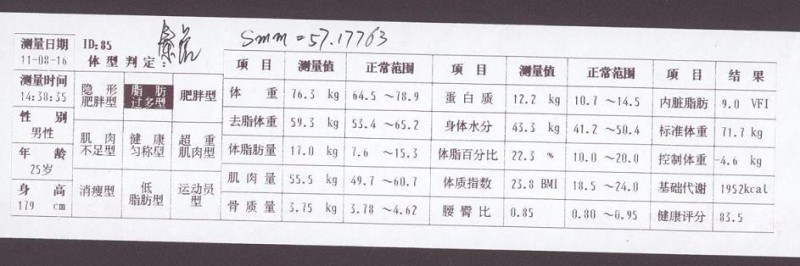 ID:85
Smm=57.17763
测量日期
11-08-16
体型判定:
测量时间
14:38:35
性 别
男性
年 龄
25岁
身 高
179 cm
隐形肥胖型 脂肪过多型 肥胖型
肌肉不足型 健康匀称型 超重肌肉型
消瘦型 低脂肪型 运动员型
项 目 测量值 正常范围 项 目 测量值 正常范围 项 目 结 果
体 重 76.3 kg 64.5 ~78.9 蛋白质 12.2 kg 10.7 ~14.5 内脏脂肪 9.0 VFI
去脂体重 59.3 kg 53.4 ~65.2 身体水分 43.3 kg 41.2 ~50.4 标准体重 71.7 kg
体脂肪量 17.0 kg 7.6 ~15.3 体脂百分比 22.3 % 10.0 ~20.0 控制体重 -4.6 kg
肌肉量 55.5 kg 49.7 ~60.7 体质指数 23.8 BMI 18.5 ~24.0 基础代谢 1952kcal
骨质量 3.75 kg 3.78 ~4.62 腰臀比 0.85 0.80 ~0.95 健康评分 83.5